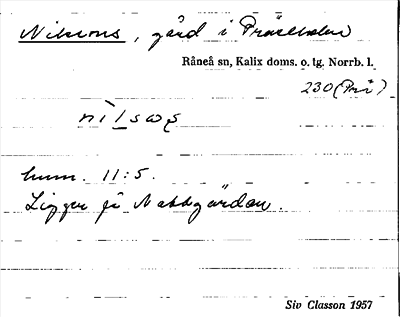 Nilsons, gård i Prästholm
Råneå sn, Kalix doms. o. tg. Norrb. l.
230 (Prä)
nìlsωs
hum. 11:5.
Ligger på Nabbgärdan.
Siv Classon 1957